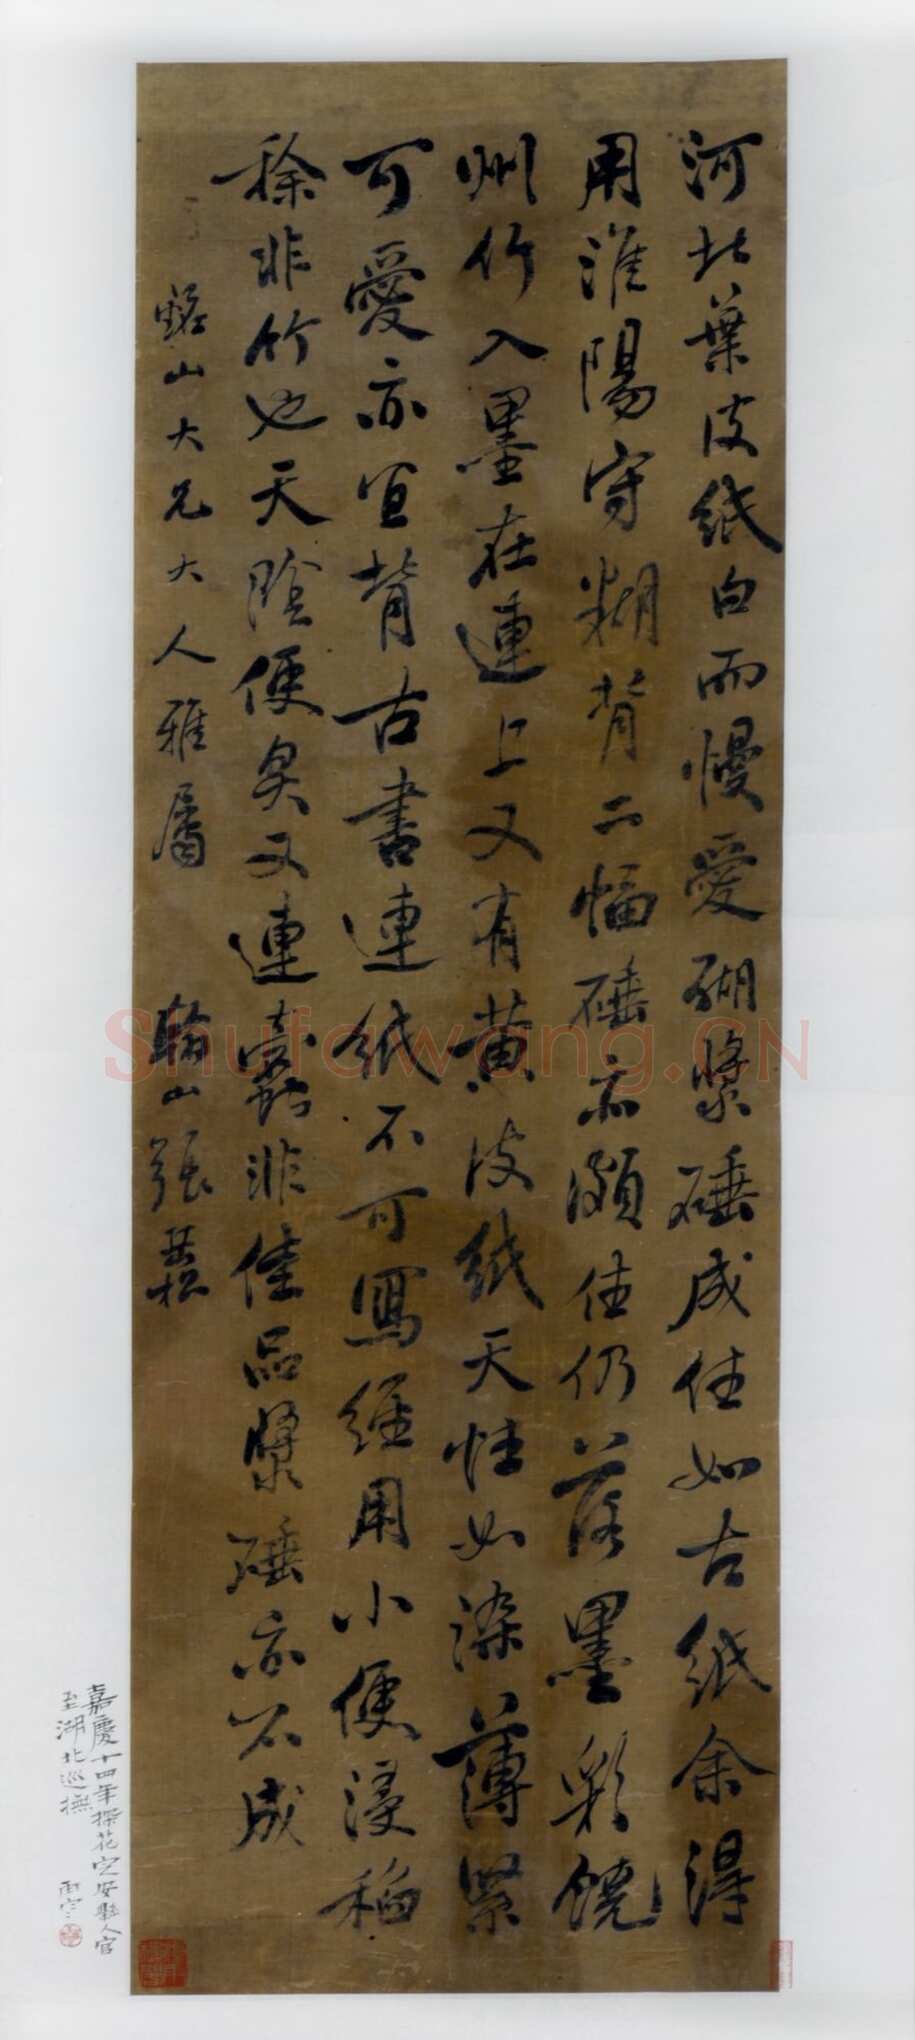 河北葉皮紙白而慢愛糊漿硾成佳如古紙余得
用淮陽守糊背二幅硾亦頗佳仍落墨彩饒
州竹入墨在連上又有黄皮紙天性如染薄緊
可愛亦宜背古書連紙不可寫經用小便浸稻
稌非竹也天陰便臭又連蠹非佳品漿硾亦不成
山大兄大人雅屬 張岳崧
嘉慶十四年探花定安縣人官
至湖北巡撫
Shufawang.CN